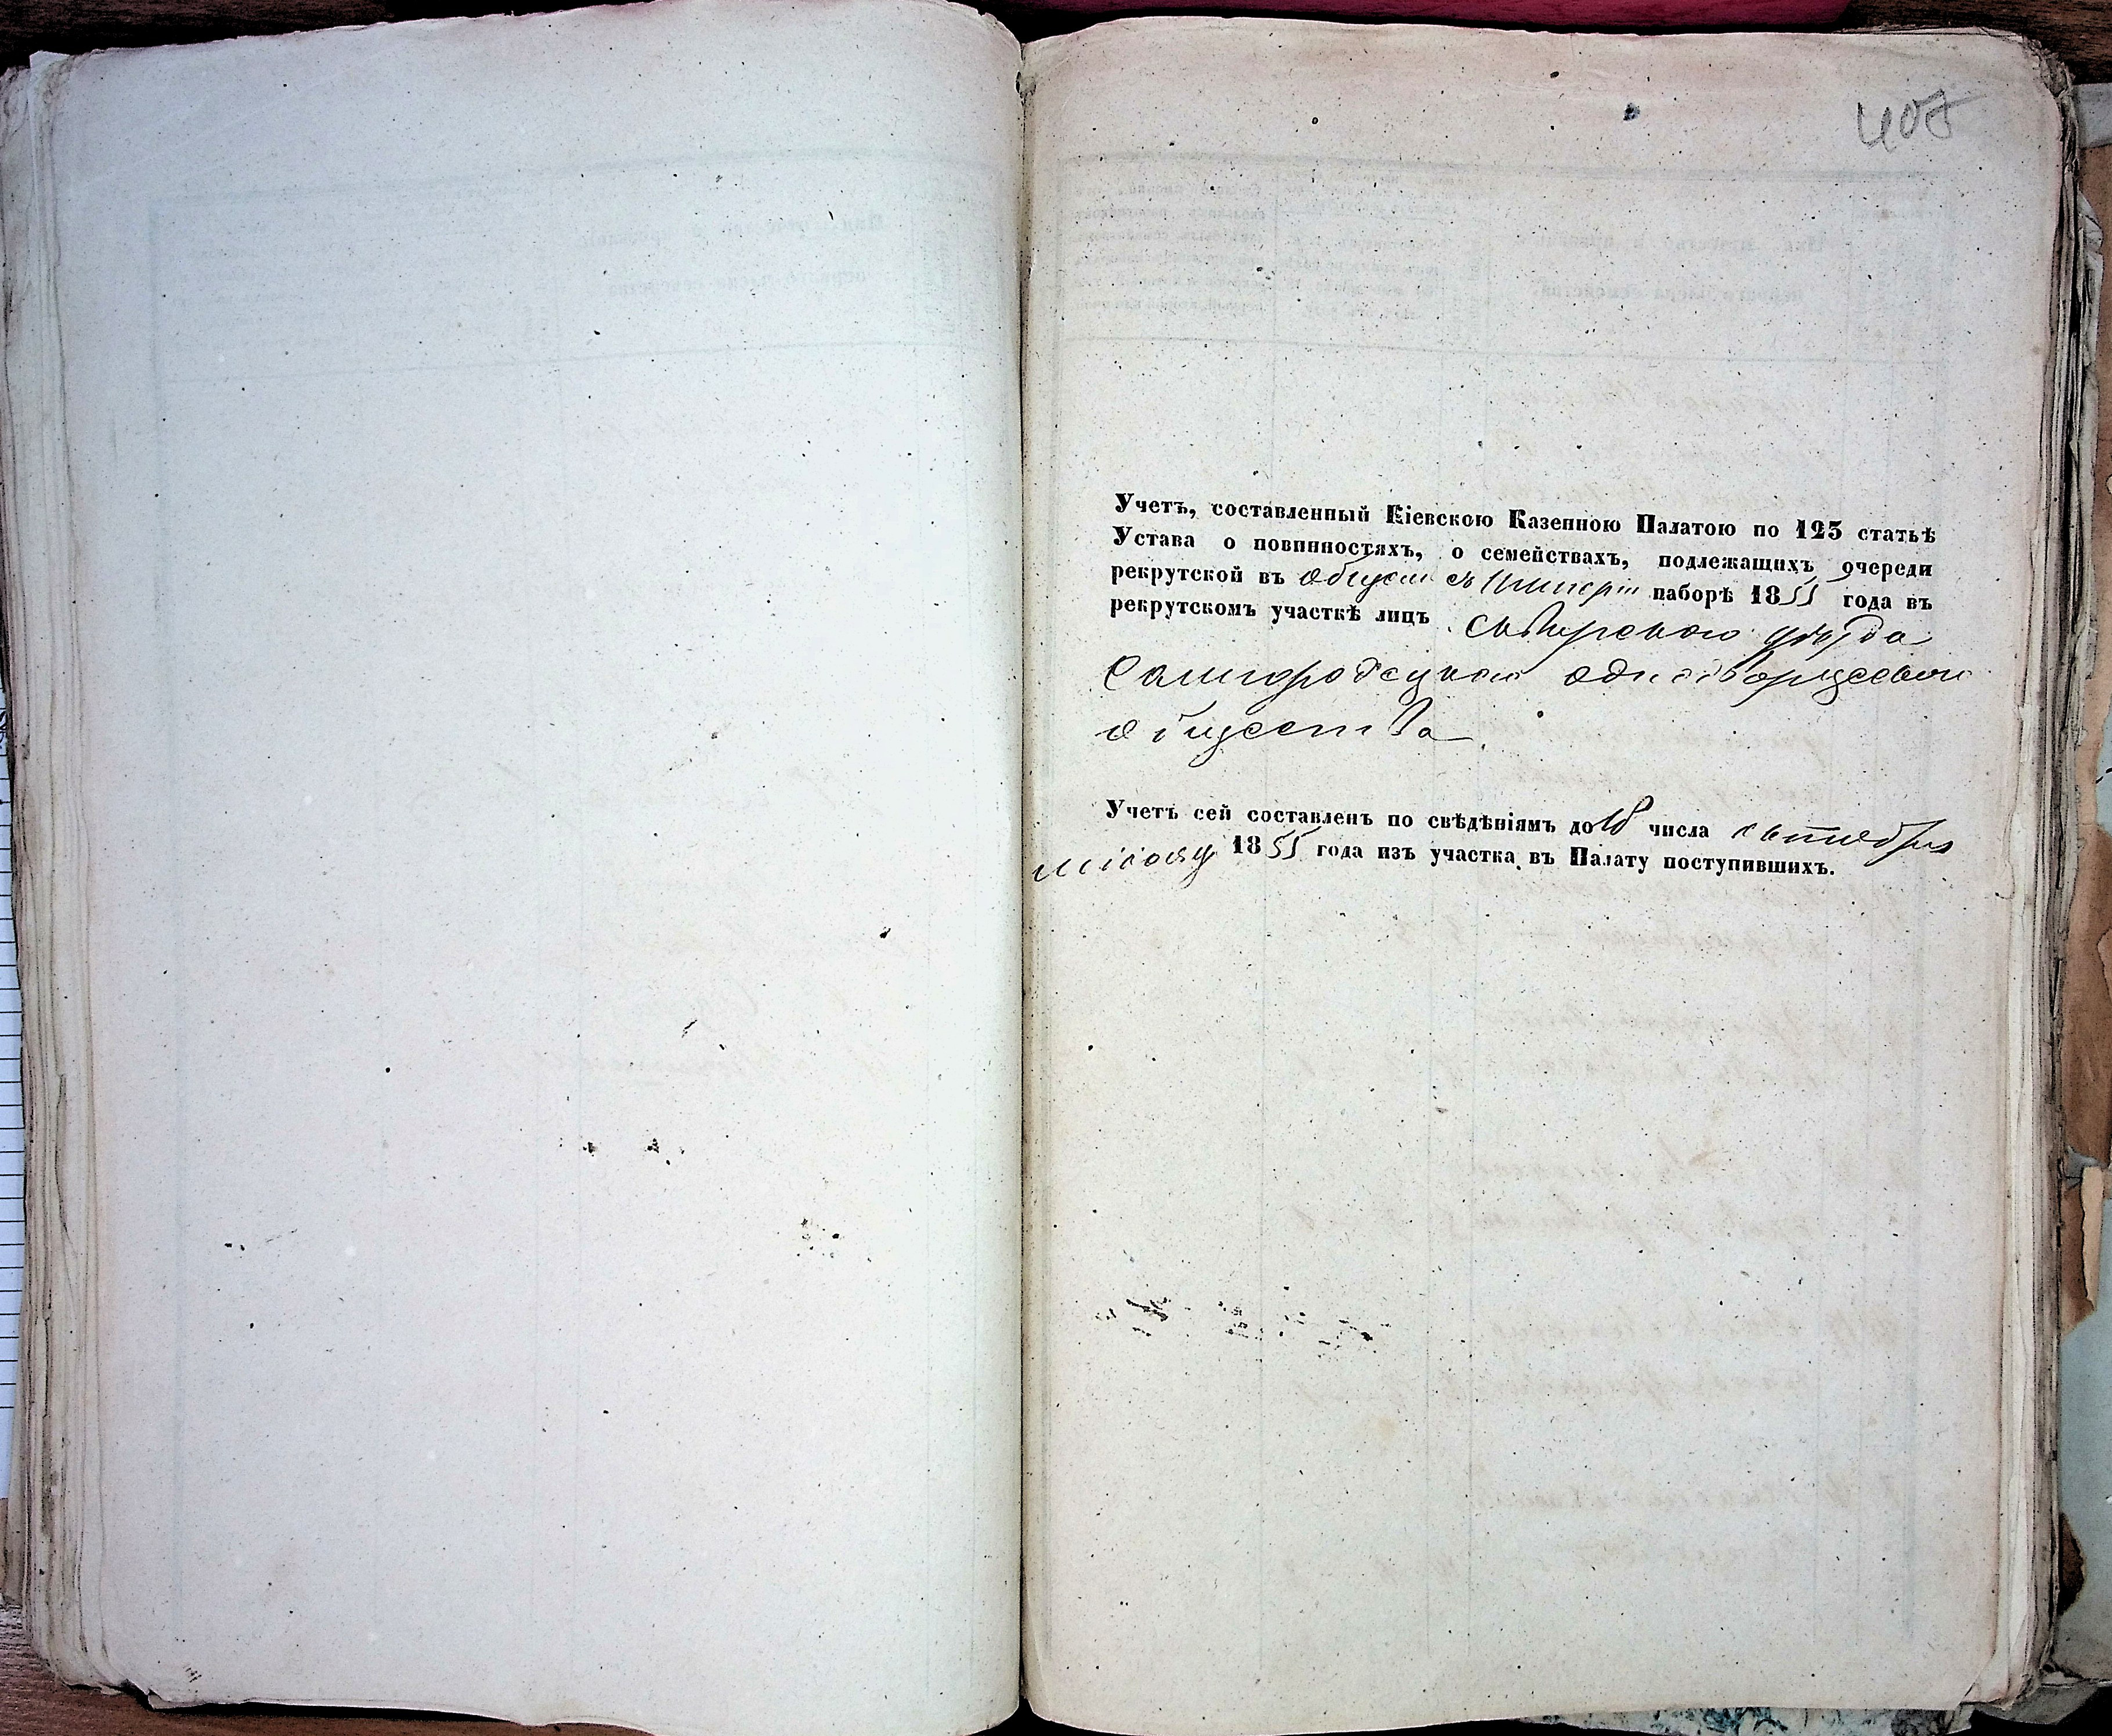 407
Учетъ, составленный Кіевскою Казенною Палатою по 123 статьѣ
Устава о повинностяхъ, о семействахъ, подлежащихъ очереди
рекрутской въ общемъ въ Имперіи наборѣ 1855 года въ
рекрутскомъ участкѣ лицъ уѣзда
однодворческаго
общества
Учетъ сей составленъ по свѣдѣніямъ до 10 числа октября
мѣсяца 1855 года изъ участка въ Палату поступившихъ.